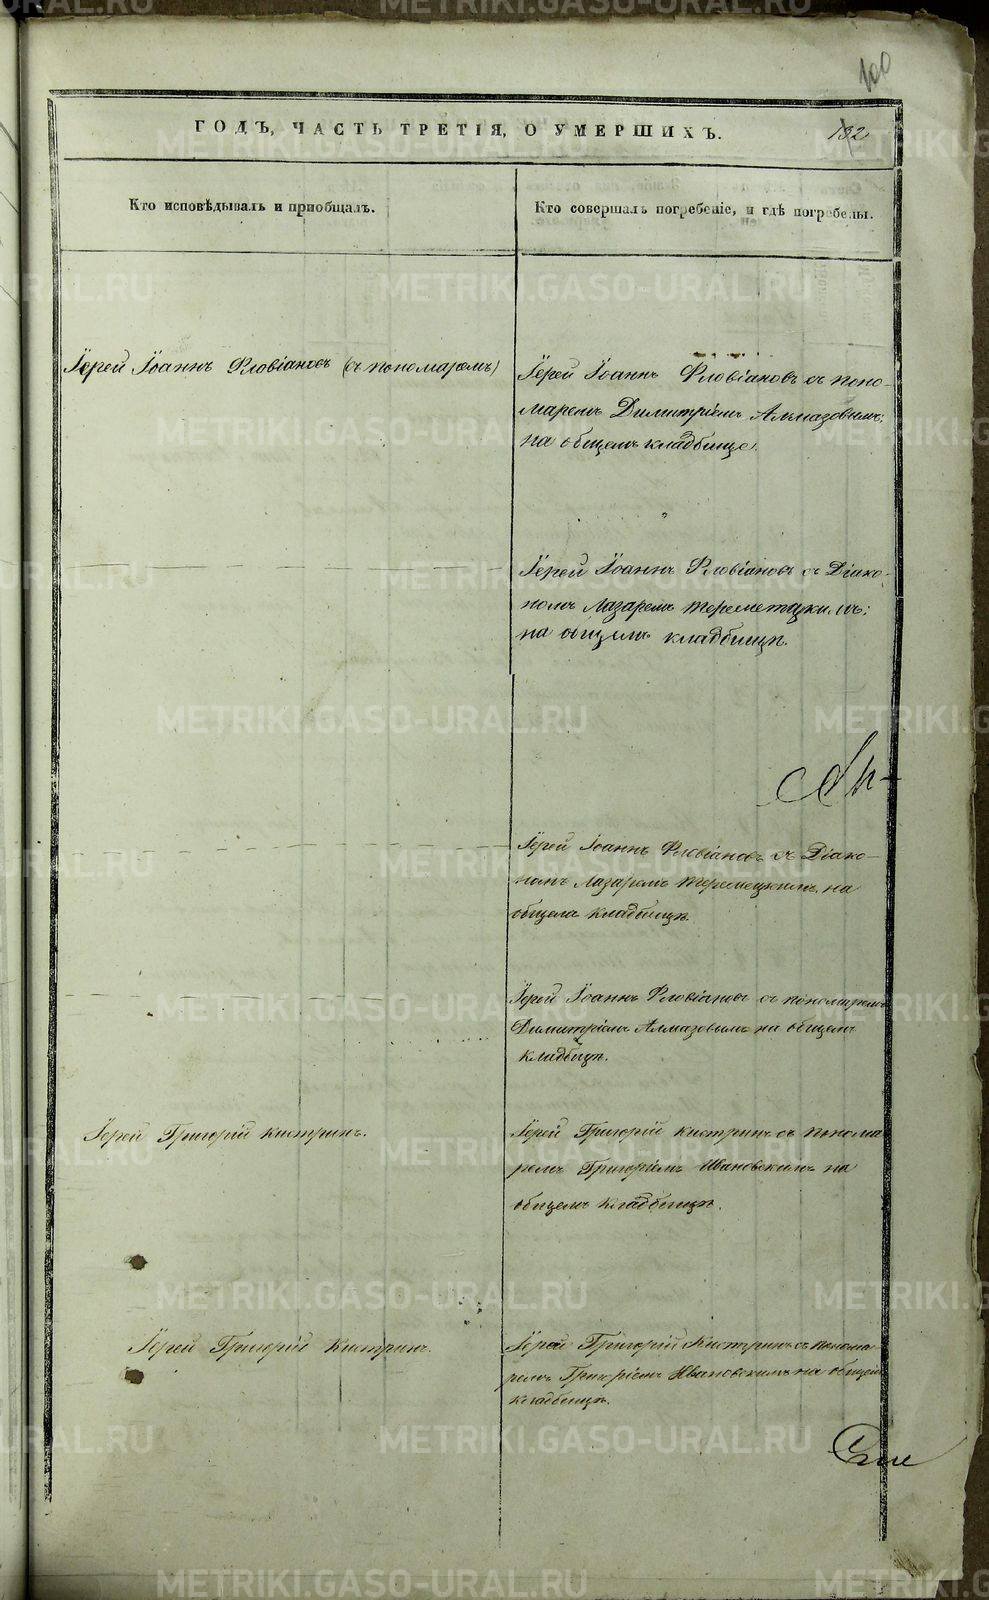 100
ГОДЪ, ЧАСТЬ ТРЕТІЯ, О УМЕРШИХЪ.
132
Кто исповѣдывалъ и приобщалъ.
Кто совершалъ погребеніе, и гдѣ погребены.
Іерей Іоаннъ Флавіановъ (съ пономаремъ)
Іерей Іоаннъ Флавіановъ съ поно-
маремъ Димитріемъ Алмазовымъ;
на общемъ кладбище.
Іерей Іоаннъ Флавіановъ съ Діако-
номъ Лазаремъ
на общемъ кладбищѣ.
Іерей Іоаннъ Флавіановъ съ Діако-
номъ Лазаремъ на
кладбищѣ
Іерей Іоаннъ Флавіановъ съ пономаремъ
Димитріемъ Алмазовымъ на общемъ
кладбищѣ.
Іерей Григорій Кистринъ.
Іерей Григорій Кистринъ съ понома
ремъ Григоріемъ Ивановскимъ на
общемъ кладбищѣ.
Іерей Григорій Кистринъ.
Іерей Григорій Кистринъ съ понома-
ремъ Григоріемъ Ивановскимъ на общемъ
кладбищѣ.
METRIKI.GASO-URAL.RU